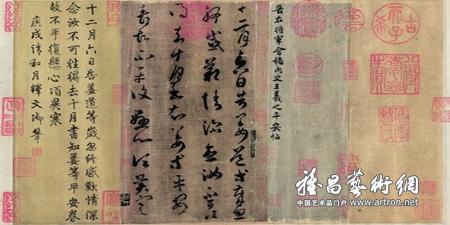 古希天子
晉右將軍會稽內史王羲之平安帖
十二月六日告姜道等歲忽
終感歎情深念汝不可
得去十月書知姜等平安
壽故不平復懸心頃異寒
十二月六日告姜道等歲忽終感歎情深
念汝不可往得去十月書知姜等平安壽
故不平復懸心頃異寒
庚戌清和月釋文御筆
雅昌藝術網
中国艺术品门户 www.artron.net